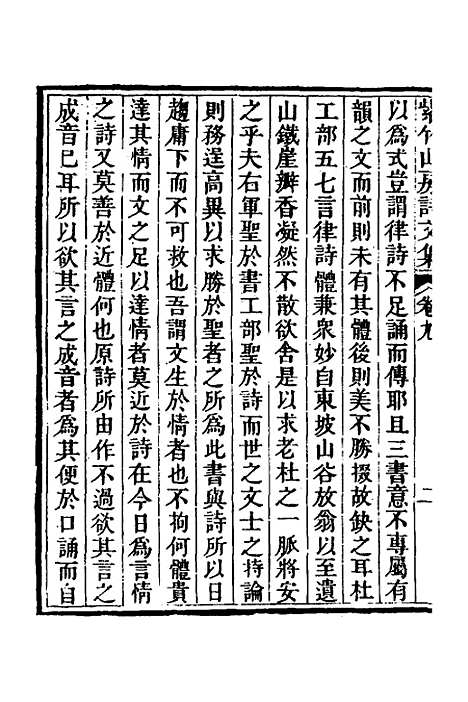 紫竹山房詩文集 卷九 二
以爲式豈謂律詩不足誦而傳耶且三書意不專屬有
韻之文而前則未有其體後則美不勝掇故缺之耳杜
工部五七言律詩體兼衆妙自東坡山谷放翁以至遺
山鐵崖瓣香凝然不散欲舍是以求老杜之一脈將安
之乎夫右軍聖於書工部聖於詩而世之文士之持論
則務逞高異以求勝於聖者之所爲此書與詩所以日
趨庸下而不可救也吾謂文生於情者也不拘何體貴
達其情而文之足以達情者莫近於詩在今日爲言情
之詩又莫善於近體何也原詩所由作不過欲其言之
成音已耳所以欲其言之成音者爲其便於口誦而自